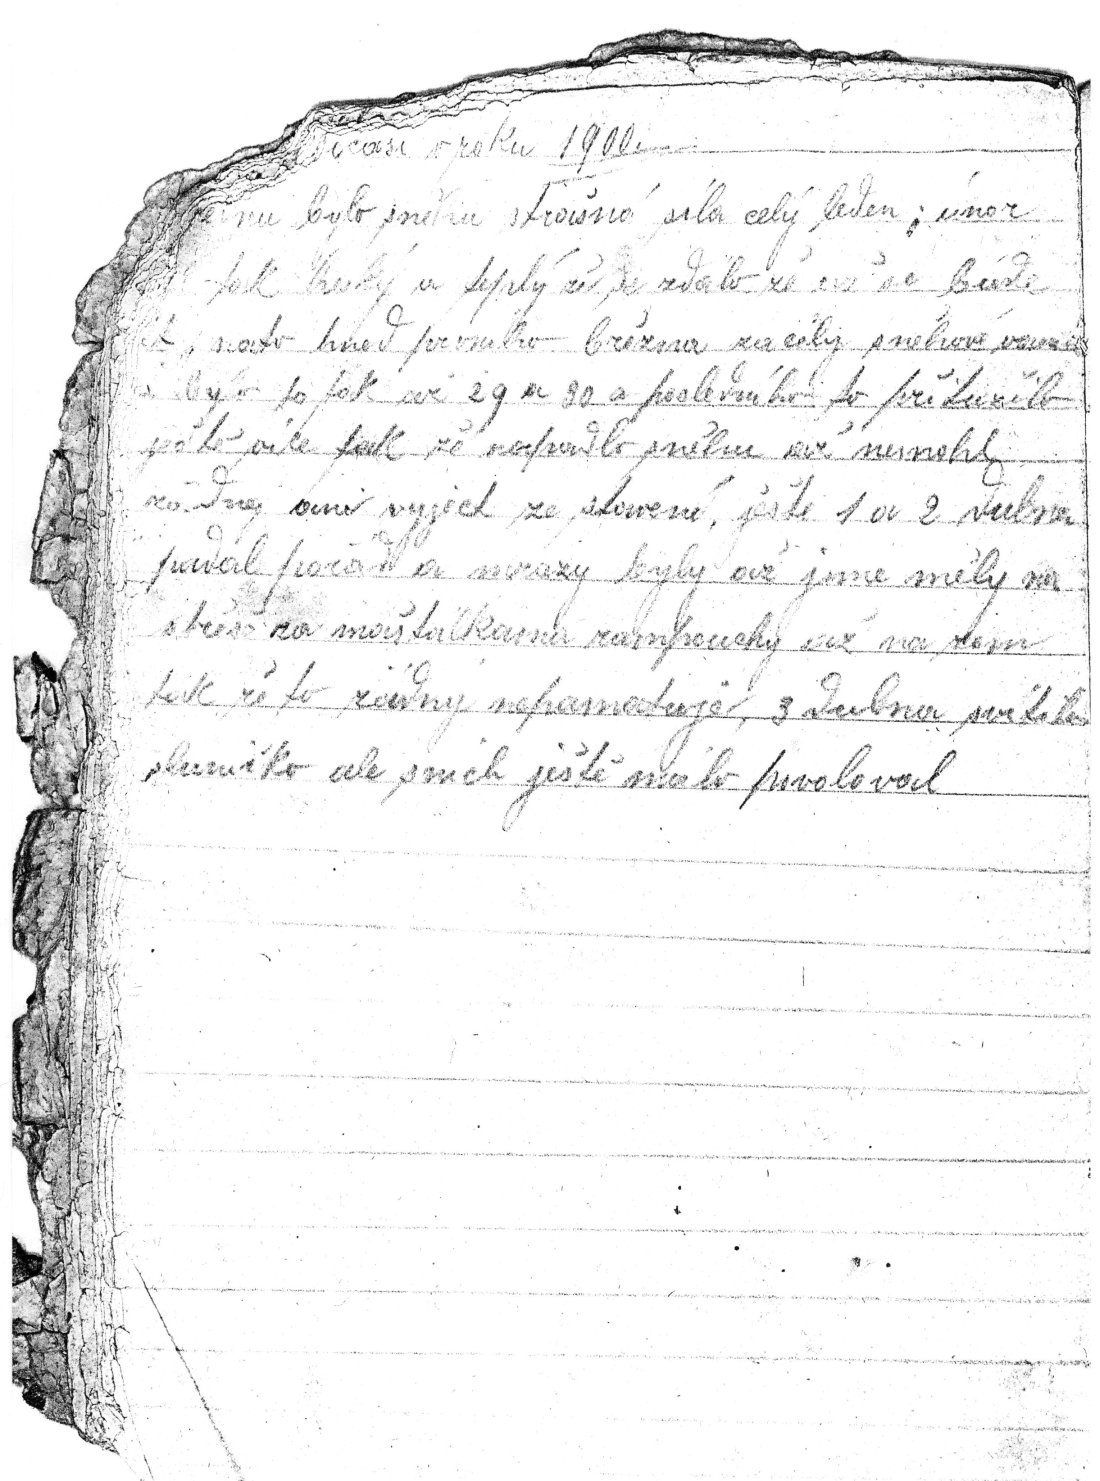 v roku 1900
bylo sněhu strašná síla celý leden; únor
tak hezký a teplý že se zdálo že už se bude
nato hned prvního března začély sněhové
bylo to tak až 29 a 30 a posledního to přitužilo
ještě více tak že napadlo sněhu až nemohl
žádnej ani vyject ze stavení, ješte 1 a 2 dubna
padal pořád a mrazy byly až jsme měly na
střeše za maštalkama rampouchy až na zem
tak že to žádný nepamatuje, 3 dubna svítilo
sluníčko ale sních ještě málo povoloval